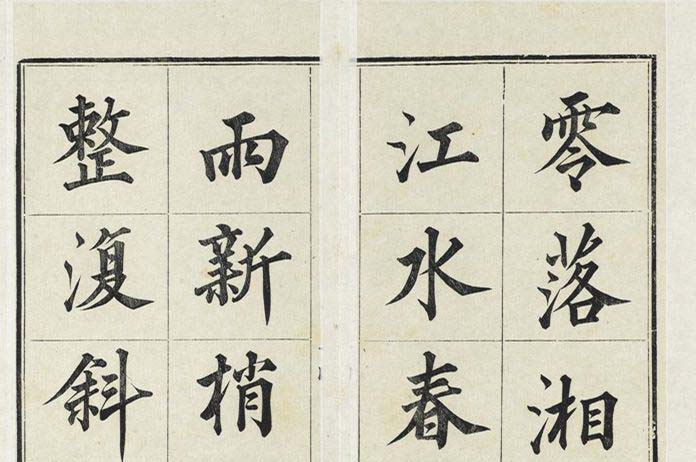 零落湘
江水春
雨新梢
整復斜